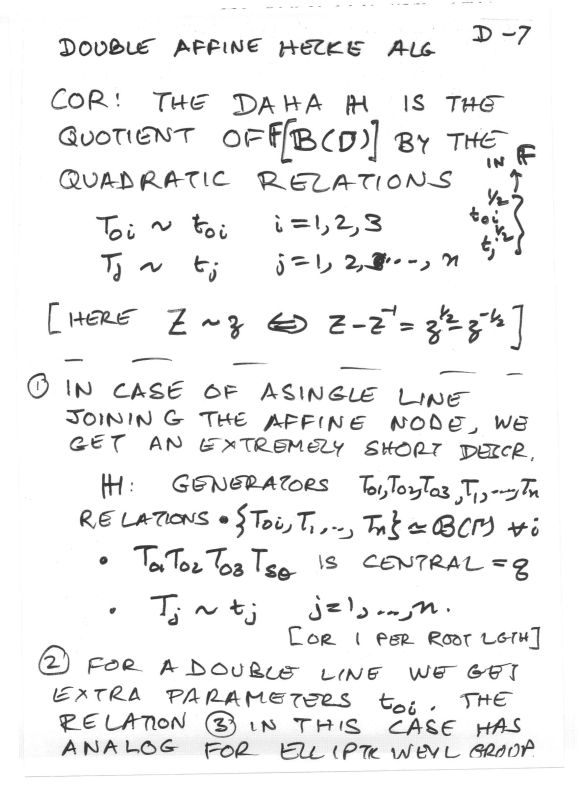 DOUBLE AFFINE HECKE ALG D-7
COR! THE DAHA ℍ IS THE
QUOTIENT OF 𝔽[B(D)] BY THE
IN 𝔽
QUADRATIC RELATIONS
T₀ᵢ ~ t₀ᵢ i=1,2,3 t₀ᵢ^{1/2}
Tⱼ ~ tⱼ j=1, 2, ..., n tⱼ^{1/2}
[HERE Z ~ z ⟺ Z-Z⁻¹ = z^{1/2}-z^{-1/2}]
① IN CASE OF A SINGLE LINE
JOINING THE AFFINE NODE, WE
GET AN EXTREMELY SHORT DESCR.
ℍ: GENERATORS T₀₁,T₀₂,T₀₃,T₁,...,Tₙ
RELATIONS • {T₀ᵢ,T₁,..., Tₙ} ≃ B(Γ) ∀i
• T₀₁T₀₂T₀₃T_{sθ} IS CENTRAL = q
• Tⱼ ~ tⱼ j=1,...,n.
[OR 1 PER ROOT LGTH]
② FOR A DOUBLE LINE WE GET
EXTRA PARAMETERS t₀ᵢ. THE
RELATION ③ IN THIS CASE HAS
ANALOG FOR ELLIPTIC WEYL GROUP